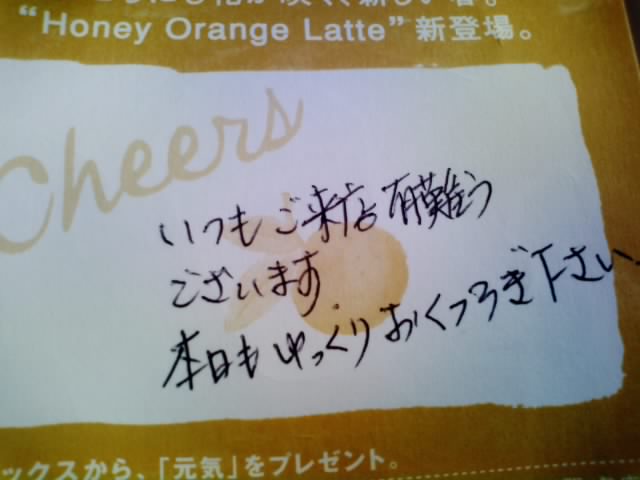 新しい春。
“Honey Orange Latte”新登場。
Cheers
いつもご来店有難う
ございます.
本日もゆっくりおくつろぎ下さい.
ックスから、「元気」をプレゼント。